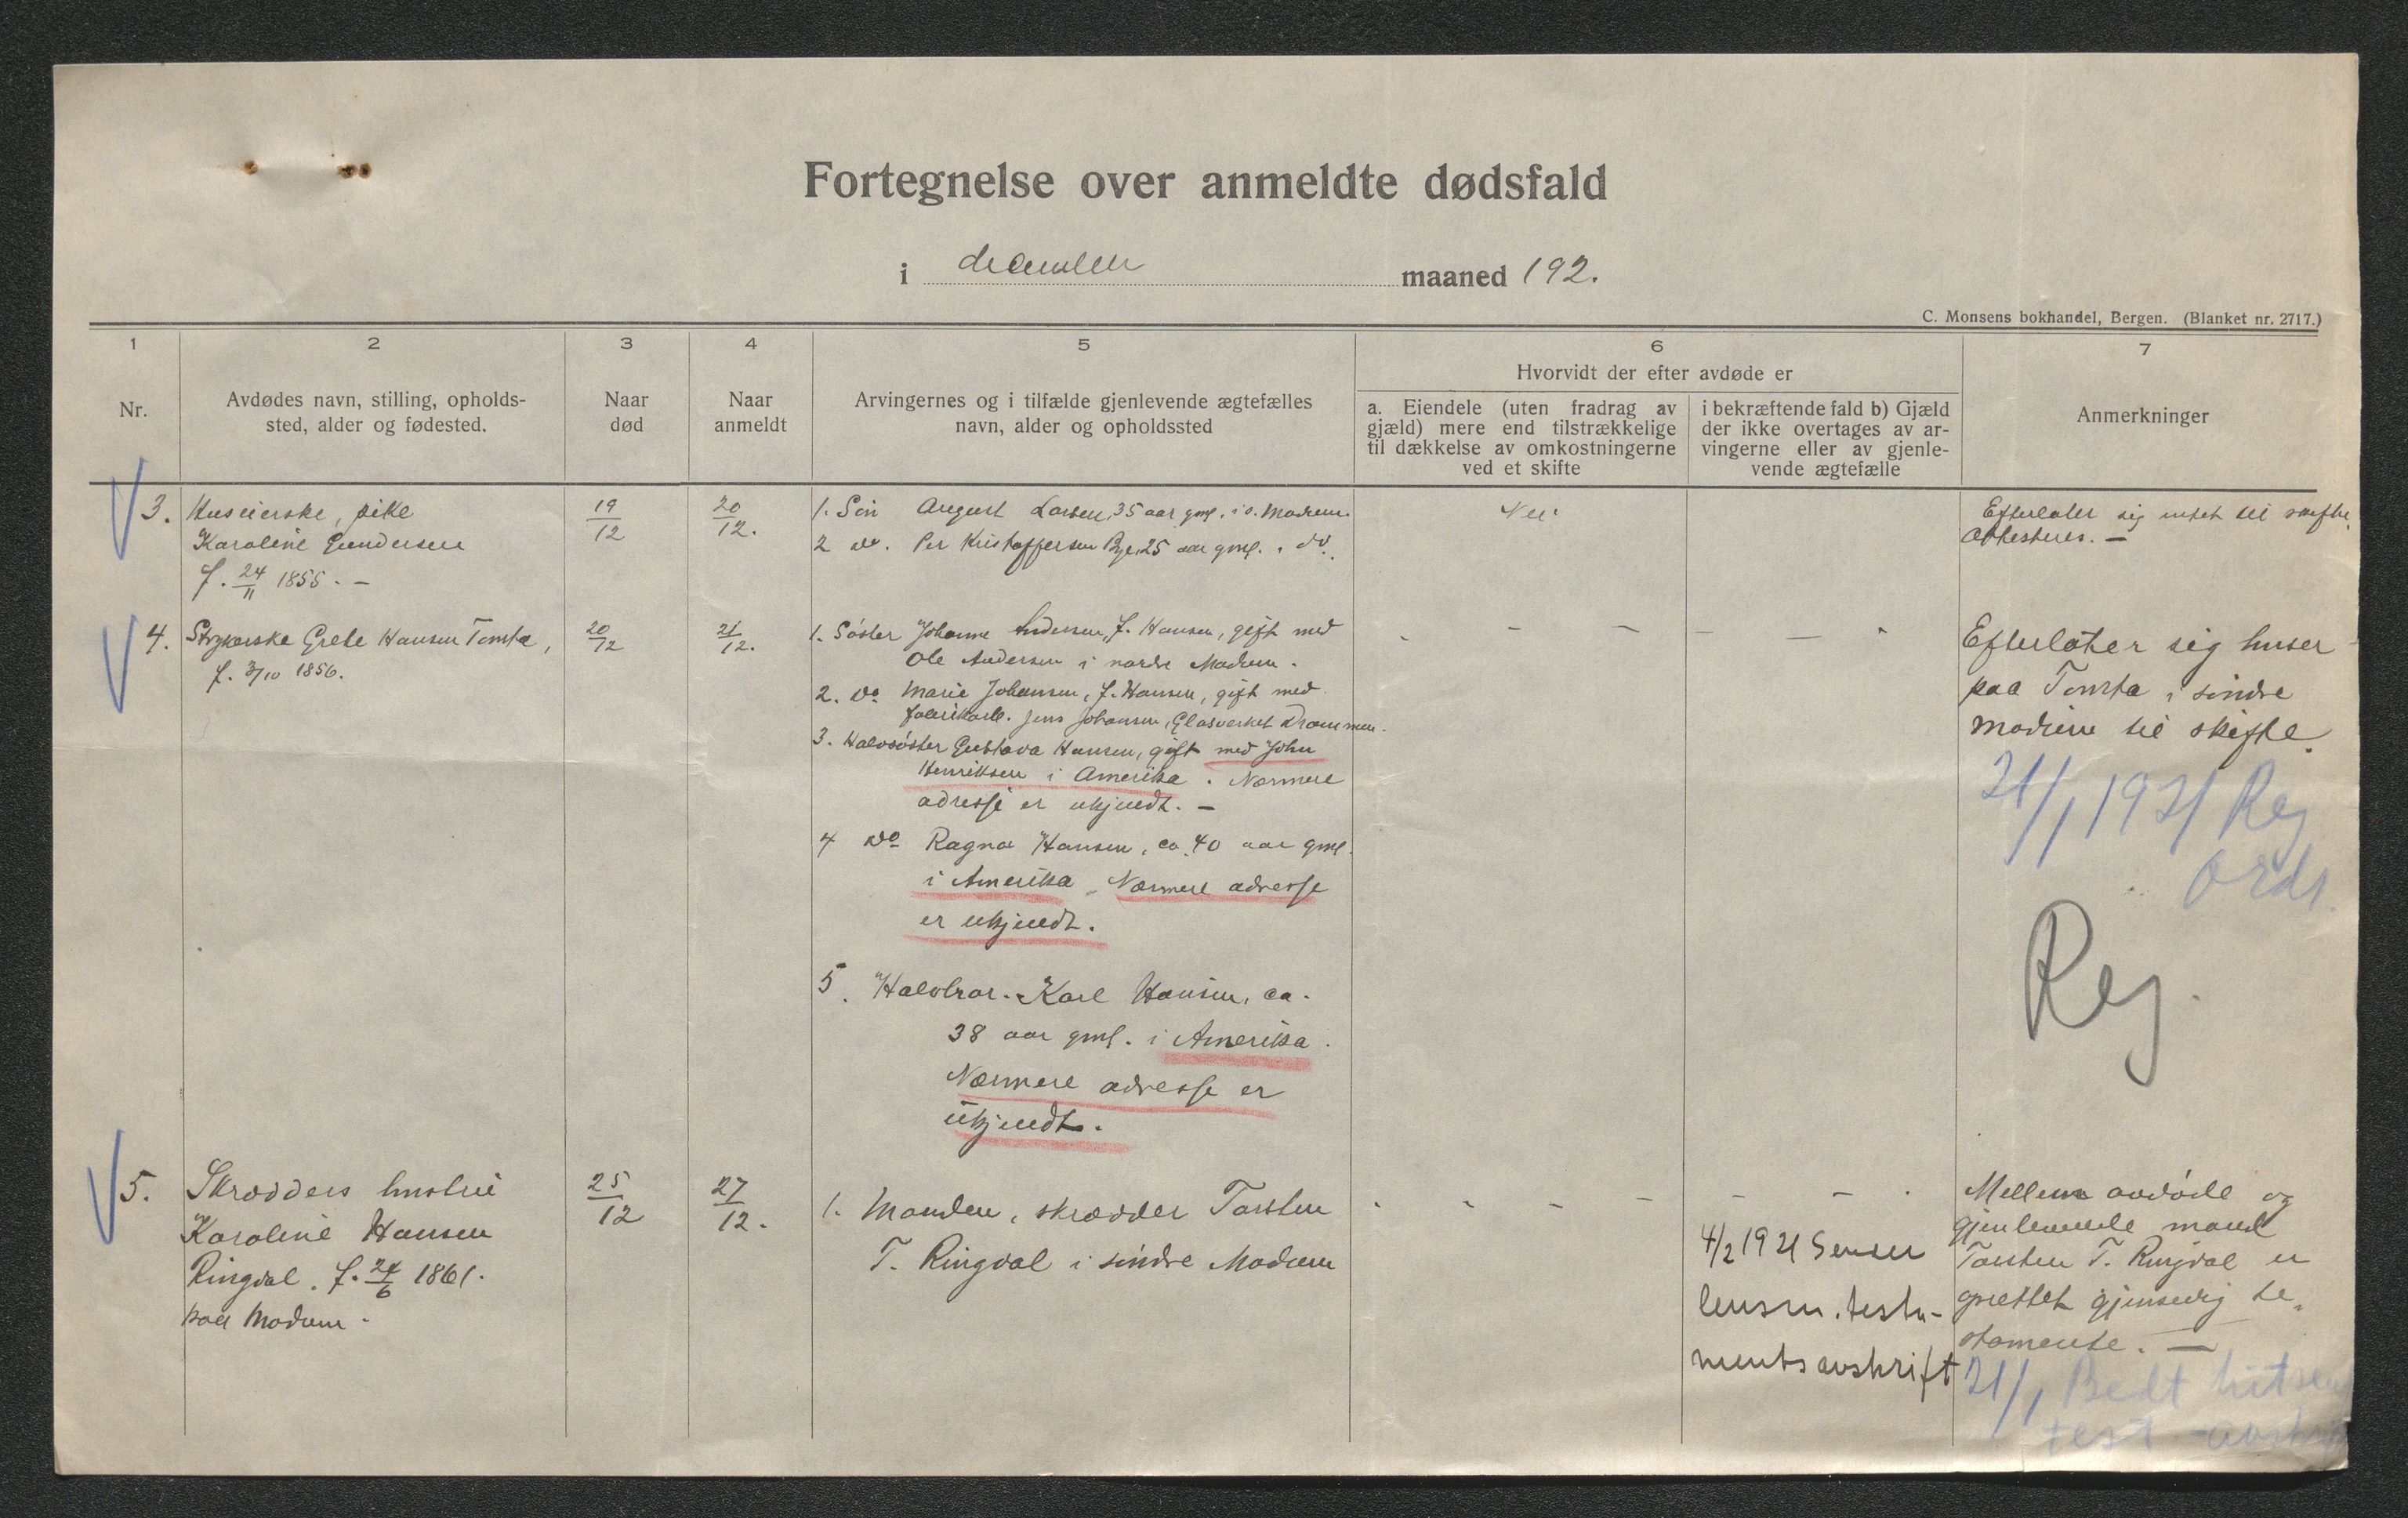 Fortegnelse over anmeldte dødsfald
i december maaned 192.
C. Monsens bokhandel, Bergen. (Blanket nr. 2717.)
1
2
3
4
5
6
7
Nr.
Avdødes navn, stilling, opholds-
sted, alder og fødested.
Naar
død
Naar
anmeldt
Arvingernes og i tilfælde gjenlevende ægtefælles
navn, alder og opholdssted
Hvorvidt der efter avdøde er
a. Eiendele (uten fradrag av
gjæld) mere end tilstrækkelige
til dækkelse av omkostningerne
ved et skifte
i bekræftende fald b) Gjæld
der ikke overtages av ar-
vingerne eller av gjenle-
vende ægtefælle
Anmerkninger
3.
Huseierske, pike
Karoline Gundersen
f. 24/11 1855. —
19/12
20/12.
1. Søn August Larsen, 35 aar gml. i s. Modum.
2 do. Per Kristoffersen Bye, 25 aar gml. i do.
Nei
Efterlater sig intet til skifte.
Attesteres. —
4.
Strykerske Grete Hansen Tomta,
f. 3/10 1856.
20/12
21/12.
1. Søster Johanne Andersen, f. Hansen, gift med
Ole Andersen i nordre Modum.
2. do Marie Johansen, f. Hansen, gift med
fabrikarb. Jens Johansen, Glasverket Drammen.
3. Halvsøster Gustava Hansen, gift med John
Henriksen i Amerika. Nærmere
adresse er ukjendt. —
4 do Ragna Hansen, ca. 40 aar gml.
i Amerika. Nærmere adresse
er ukjendt.
5. Halvbror. Karl Hansen, ca.
38 aar gml. i Amerika.
Nærmere adresse er
ukjendt.
Efterlater sig huser
paa Tomta i søndre
Modum til skifte.
21/1 1921 Reg
ords.
Reg.
5.
Skrædders hustru
Karoline Hansen
Ringdal. f. 24/6 1861.
paa Modum.
25/12
27/12.
1. Manden, skrædder Torsten
T. Ringdal i søndre Modum
4/2 1921
lensm. testa-
mentsavskrift
Mellem avdøde og
gjenlevende mand
Torsten T. Ringdal er
oprettet gjensidig te-
stamente. —
21/1 Bedt
test avskr